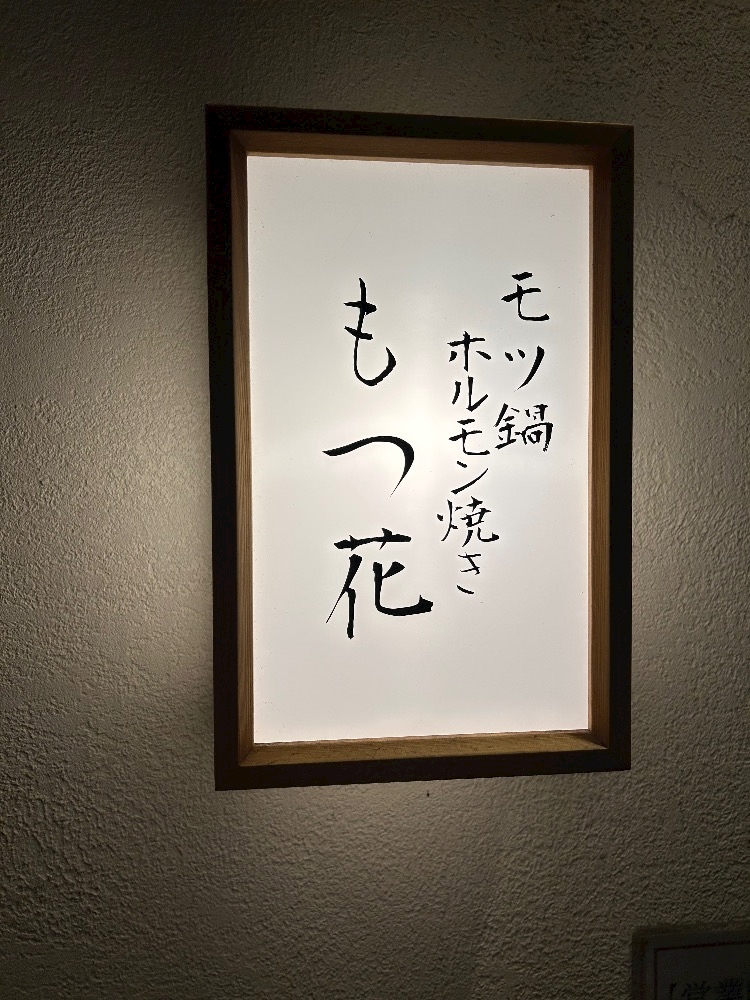 モツ鍋
ホルモン焼き
もつ花